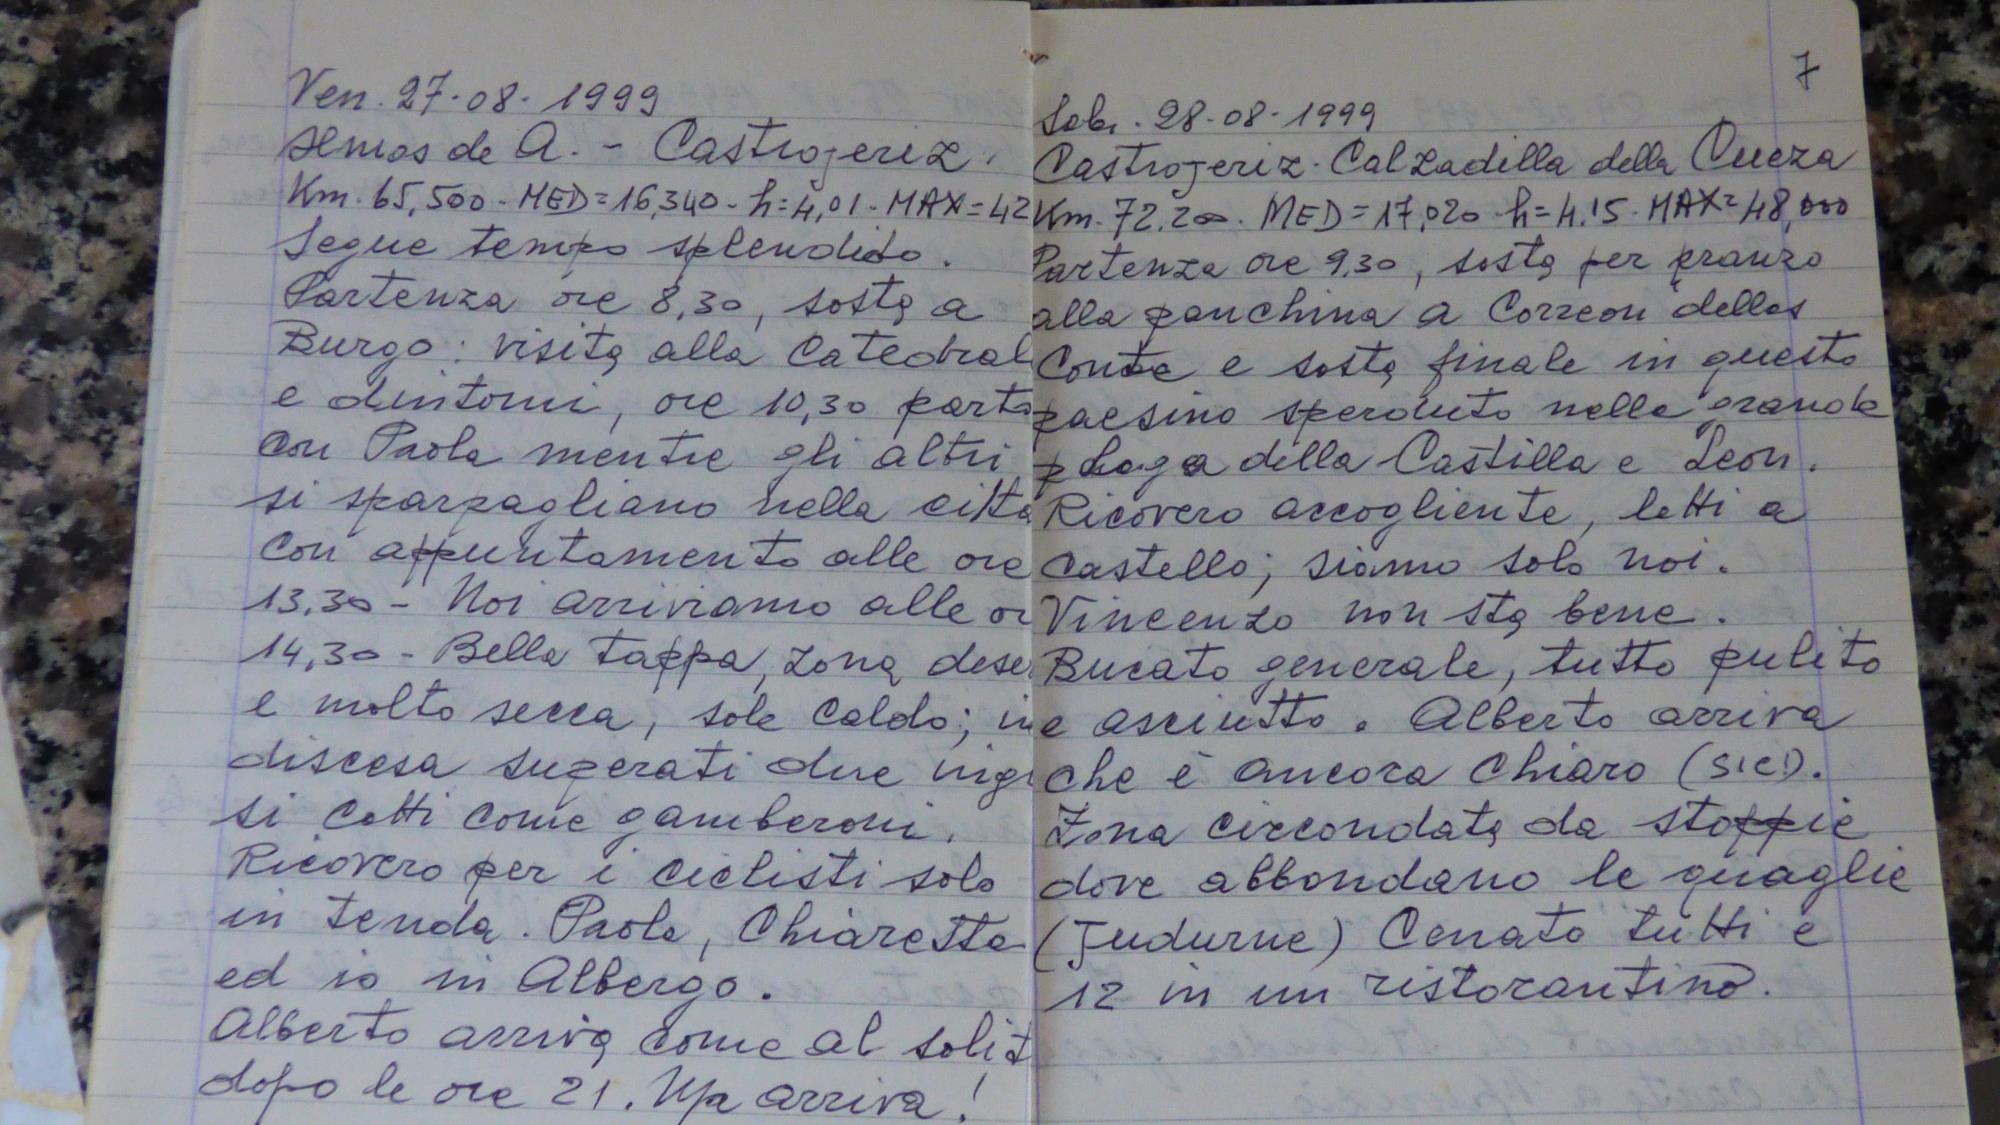 Ven. 27-08-1999
de A. - Castrojeriz.
Km. 65,500 - MED=16,340 - h=4,01 - MAX=42
Segue tempo splendido.
Partenza ore 8,30, sosta a
Burgo: visita alla Catedral
e dintorni, ore 10,30 parto
con Paola mentre gli altri
si sparpagliano nella città
con appuntamento alle ore
13,30 - Noi arriviamo alle or
14,30 - Bella tappa, zona dese
e molto secca, sole caldo; in
discesa superati due ingl
si cotti come gamberoni.
Ricovero per i ciclisti solo
in tenda. Paola, Chiaretta
ed io in Albergo.
Alberto arriva come al solit
dopo le ore 21. Ma arriva!
7
Sab. 28-08-1999
Castrojeriz - Calzadilla della Cueza
Km. 72,200. MED=17,020 h=4,15 - MAX=48,000
Partenza ore 9,30, sosta per pranzo
alla panchina a Correon dellos
Conte e sosta finale in questo
paesino sperduto nelle grande
plaga della Castilla e Leon.
Ricovero accogliente, letti a
castello; siamo solo noi.
Vincenzo non sta bene.
Bucato generale, tutto pulito
e asciutto. Alberto arriva
che è ancora chiaro (sic!).
Zona circondata da stoppie
dove abbondano le quaglie
(Judurne) Cenato tutti e
12 in un ristorantino.